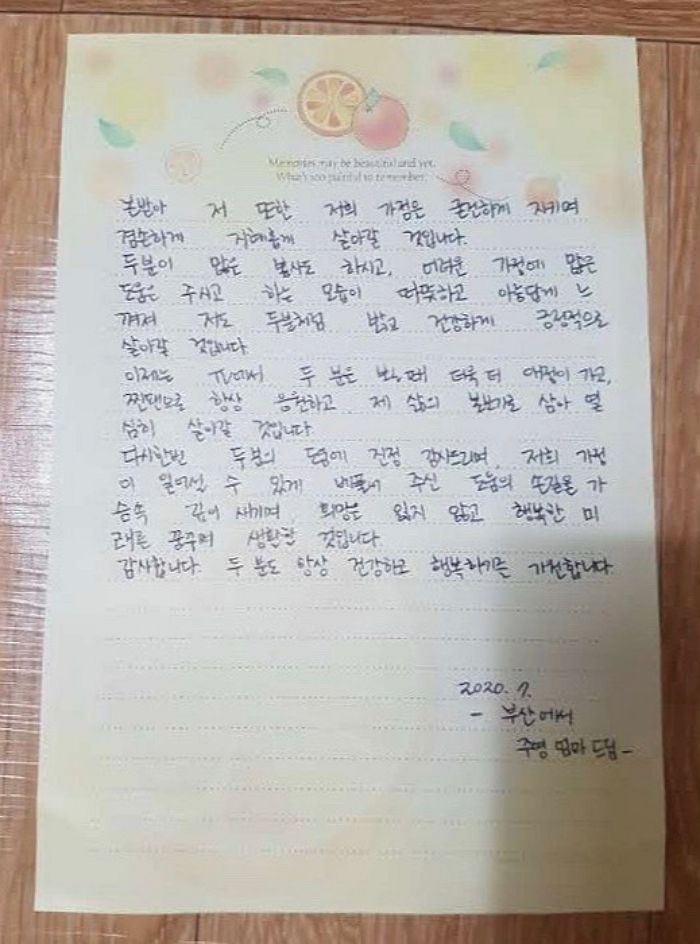 Memories may be beautiful and yet.
What's too painful to remember.
본받아 저 또한 저희 가정은 굳건하게 지키며
겸손하게 지혜롭게 살아갈 것입니다.
두분이 많은 봉사도 하시고, 어려운 가정에 많은
도움은 주시고 하는 모습이 따뜻하고 아름답게 느
껴져 저도 두분처럼 밝고 건강하게 긍정적으로
살아갈 것입니다
이제는 TV에서 두 분은 보늘때 더욱 더 애정이 가고,
찐팬으로 항상 응원하고 제 삶의 본보기로 삼아 열
심히 살아갈 것입니다
다시한번 두분의 도움에 진정 감사드리며, 저희 가정
이 일어설 수 있게 베풀어 주신 도움의 손길을 가
슴속 깊이 새기며, 희망은 잃지 않고 행복한 미
래를 꿈꾸며 생활할 것입니다.
감사합니다 두 분도 항상 건강하고 행복하기를 기원합니다
2020. 7.
- 부산에서
주영 엄마 드림-